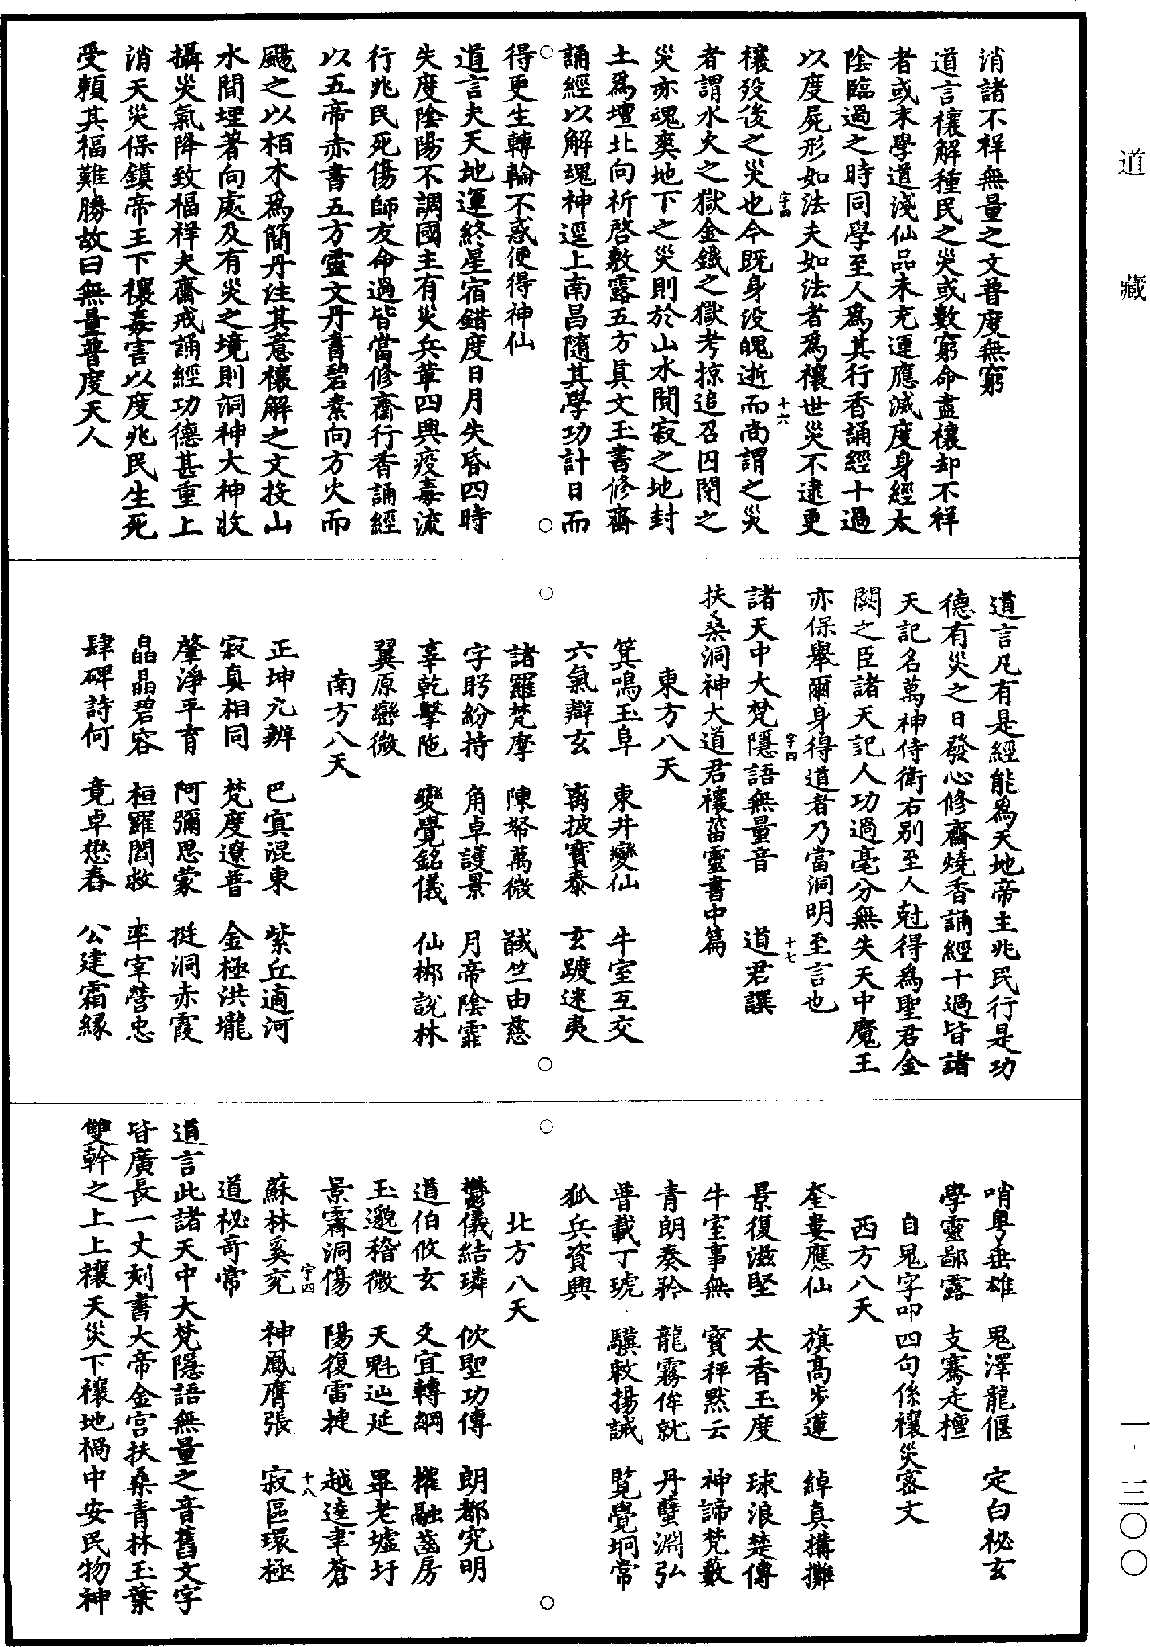 道藏
一·三〇〇
消諸不祥無量之文普度無窮
道言禳解種民之災或數窮命盡禳却不祥
者或未學道淺仙品未充運應滅度身經太
陰臨過之時同學至人為其行香誦經十過
以度屍形如法夫如法者為禳世災不逮更
禳歿後之災也今既身没魄逝而尚謂之災
字四 十六
者謂水火之獄金鐵之獄考掠追召囚閉之
災亦魂爽地下之災則於山水間寂之地封
土為壇北向祈啓敷露五方真文玉書修齋
誦經以解魂神逕上南昌隨其學功計日而
得更生轉輪不惑便得神仙
道言夫天地運終星宿錯度日月失昏四時
失度陰陽不調國主有災兵革四興疫毒流
行兆民死傷師友命過皆當修齋行香誦經
以五帝赤書五方靈文丹書碧素向方火而
颺之以栢木為簡丹注其意禳解之文投山
水間埋著向處及有災之境則洞神大神收
攝災氣降致福祥夫齋戒誦經功德甚重上
消天災保鎮帝王下禳毒害以度兆民生死
受賴其福難勝故曰無量普度天人
道言凡有是經能為天地帝主兆民行是功
德有災之日發心修齋燒香誦經十過皆諸
天記名萬神侍衛右別至人尅得為聖君金
闕之臣諸天記人功過毫分無失天中魔王
亦保舉爾身得道者乃當洞明至言也
字四 十七
諸天中大梵隱語無量音 道君譔
扶桑洞神大道君禳菑靈書中篇
東方八天
箕鳴玉阜 東井變仙 牛室互交
六氣辯玄 离披寶泰 玄踱迷夷
諸羅梵摩 陳帑萬微 誠竺由慈
字盻紛持 角卓護景 月帝陰霏
辜乾擊陁 變覺銘儀 仙梆説林
翼原巒微
南方八天
正坤亢辨 巴寘混東 紫丘適河
寂真相同 梵度遼普 金極洪壠
肇淨平育 阿彌思蒙 挺洞赤霞
晶晶碧容 桓羅閻救 率宰營忠
肆碑詩何 竟卓懋春 公建霜緣
哨粤垂雄 鬼澤龍偃 定白祕玄
學靈鄙露 支騫走檀
自鬼字叩四句係禳災密文
西方八天
奎婁應仙 旗高步蓮 綽真搆攤
景復滋堅 太香玉度 球浪楚傳
牛室事無 寳秤黙云 神諦梵數
青朗奏矜 龍霧侔就 丹蠥淵弘
普載丁琥 驥敕揚誠 覽覺坰常
狐兵資興
北方八天
鬱儀結璘 佽聖功傳 朗都究明
道伯攸玄 爻宜轉綱 摧融蓾房
玉邈稽微 天魁辿延 畢老墟圩
景霧洞傷 陽復雷㨗 越逵聿蒼
字四 十八
蘇林奚兖 神鳳膺張 寂區環極
道秘奇常
道言此諸天中大梵隱語無量之音舊文字
皆廣長一丈刻書大帝金宫扶桑青林玉葉
雙幹之上上禳天災下禳地禍中安民物神